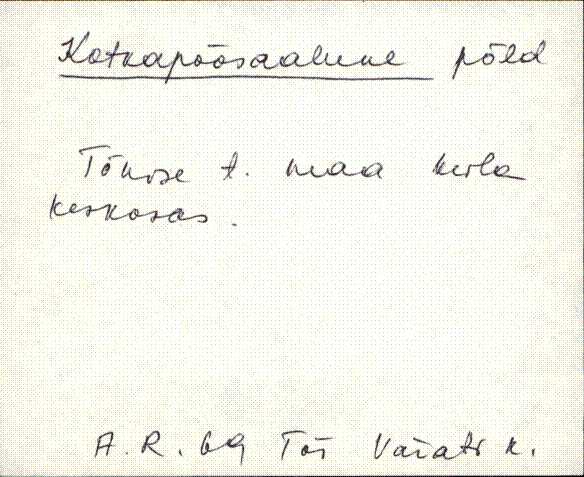 Kotkapõõsaalune põld
Tõnise t. maa küla
keskosas.
A. R. 69 Tõs Varati k.